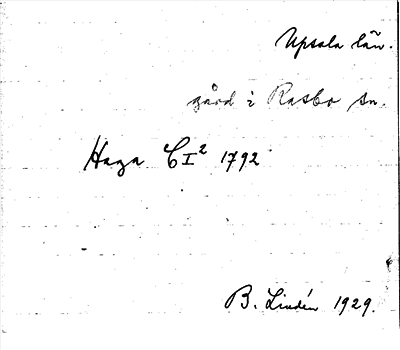 Upsala län.
gård i Rasbo sn.
Haga CI² 1792
B. Lindén 1929.